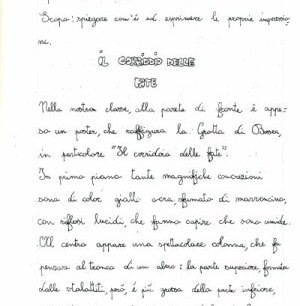 Scopo: spiegare com'è ed esprimere le proprie impressio
ni.
IL CORRIDOIO DELLE
FATE
Nella nostra classe, alla parete di fronte è appe-
so un poster, che raffigura la Grotta di Bossea,
in particolare "Il corridoio delle fate".
In primo piano tante magnifiche concrezioni
sono di color giallo ocra, sfumato di marroncino,
con riflessi lucidi, che fanno capire che sono umide.
Al centro appare una spettacolare colonna, che fa
pensare al tronco di un albero: la parte superiore, formata
dalle stalattiti, però, è più grossa della parte inferiore,